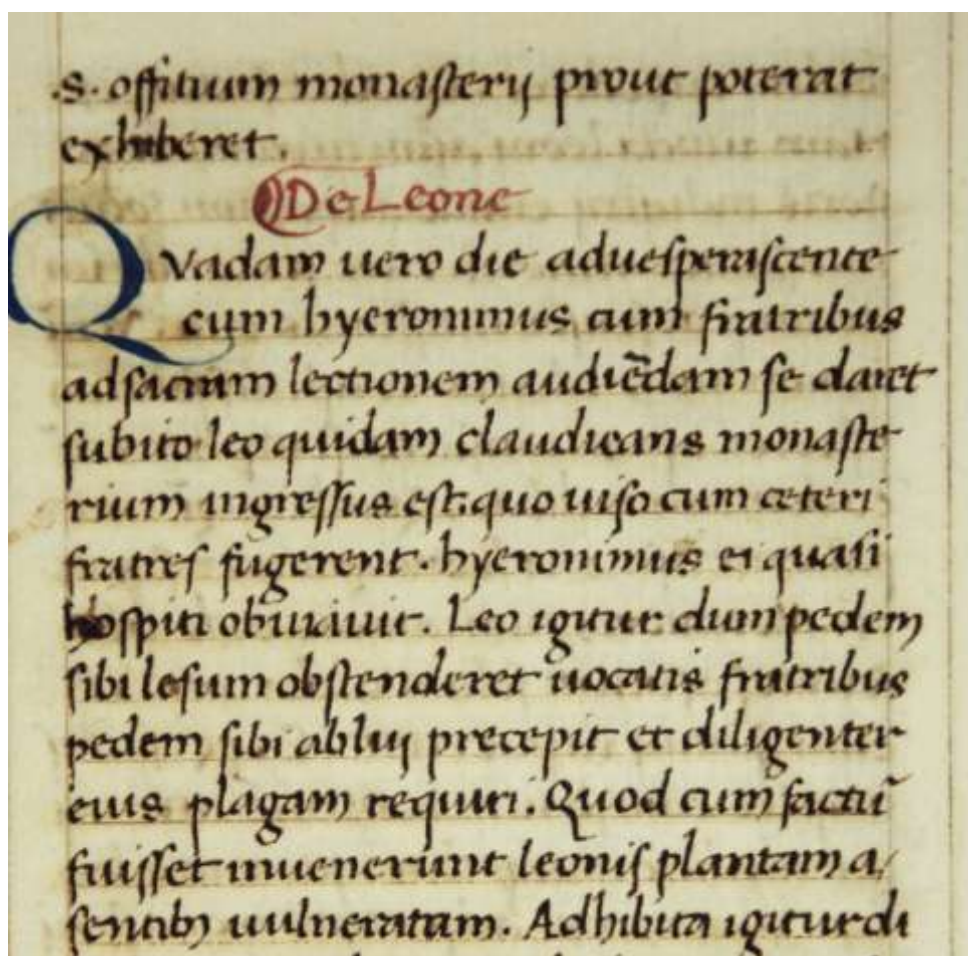 .s. offitium monasterij prout poterat
exhiberet.
De Leone
QVadam uero die aduesperascente
cum hyeronimus cum fratribus
ad sacram lectionem audiēdam se daret
subito leo quidam claudicans monaste
rium ingressus est. quo uiso cum ceteri
fratres fugerent. hyeronimus ei quasi
hospiti obuiauit. Leo igitur dum pedem
sibi lesum obstenderet uocatis fratribus
pedem sibi abluij precepit et diligenter
eius plagam requiri. Quod cum factū
fuisset inuenerunt leonis plantam a
sentibꝫ uulneratam. Adhibita igitur di